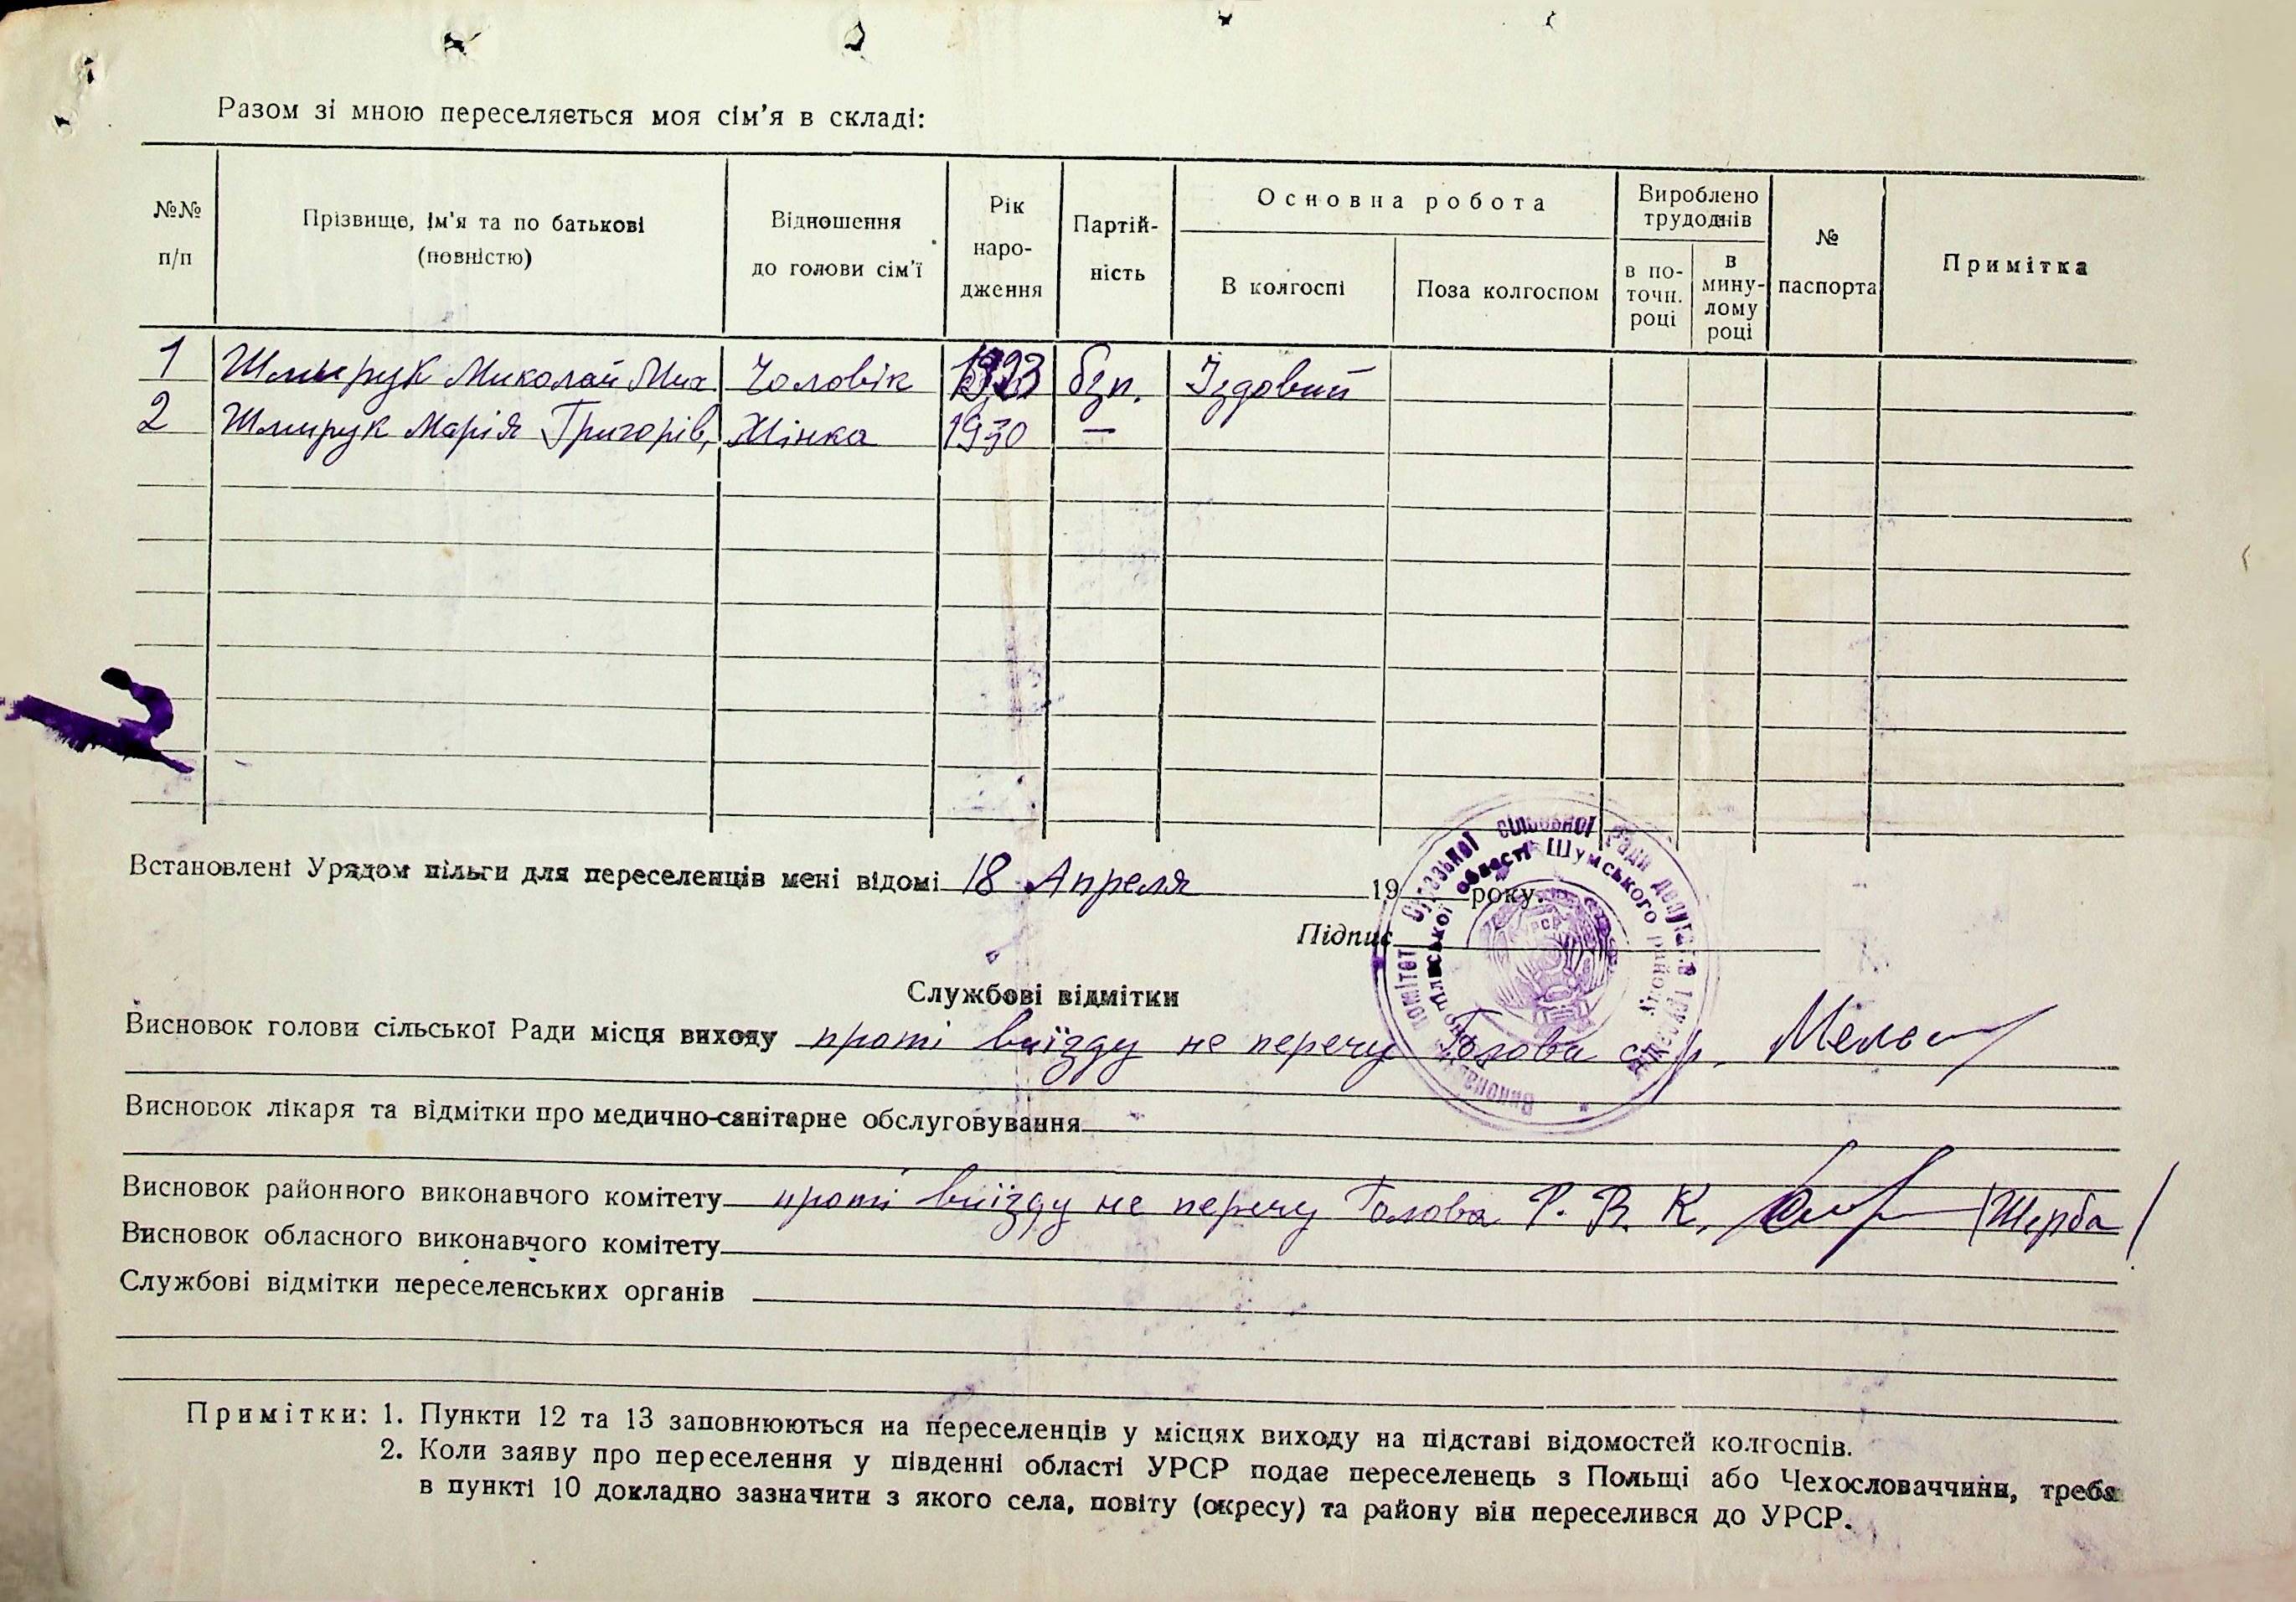 Разом зі мною переселяеться моя сім'я в складі:
№№ п/п
Прізвище, ім'я та по батькові (повністю)
Відношення до голови сім'ї
Рік народження
Партійність
Основна робота
В колгоспі
Поза колгоспом
Вироблено трудоднів
в поточн. році
в минулому році
№ паспорта
Примітка
1 Шмирук Миколай Мих Чоловік 1923 бзп. Їздовий
2 Шмирук Марія Григорів, Жінка 1930 —
Встановлені Урядом пільги для переселенців мені відомі 18 Апреля 19 року.
Підпис
Службові відмітки
Висновок голови сільської Ради місця виходу проти виїзду не перечу Голова с/р.
Висновок лікаря та відмітки про медично-санітарне обслуговування
Висновок районного виконавчого комітету проти виїзду не перечу Голова Р. В. К. /Щерба/
Висновок обласного виконавчого комітету
Службові відмітки переселенських органів
Примітки: 1. Пункти 12 та 13 заповнюються на переселенців у місцях виходу на підставі відомостей колгоспів.
2. Коли заяву про переселення у південні області УРСР подає переселенець з Польщі або Чехословаччини, треба
в пункті 10 докладно зазначити з якого села, повіту (окресу) та району він переселився до УРСР.